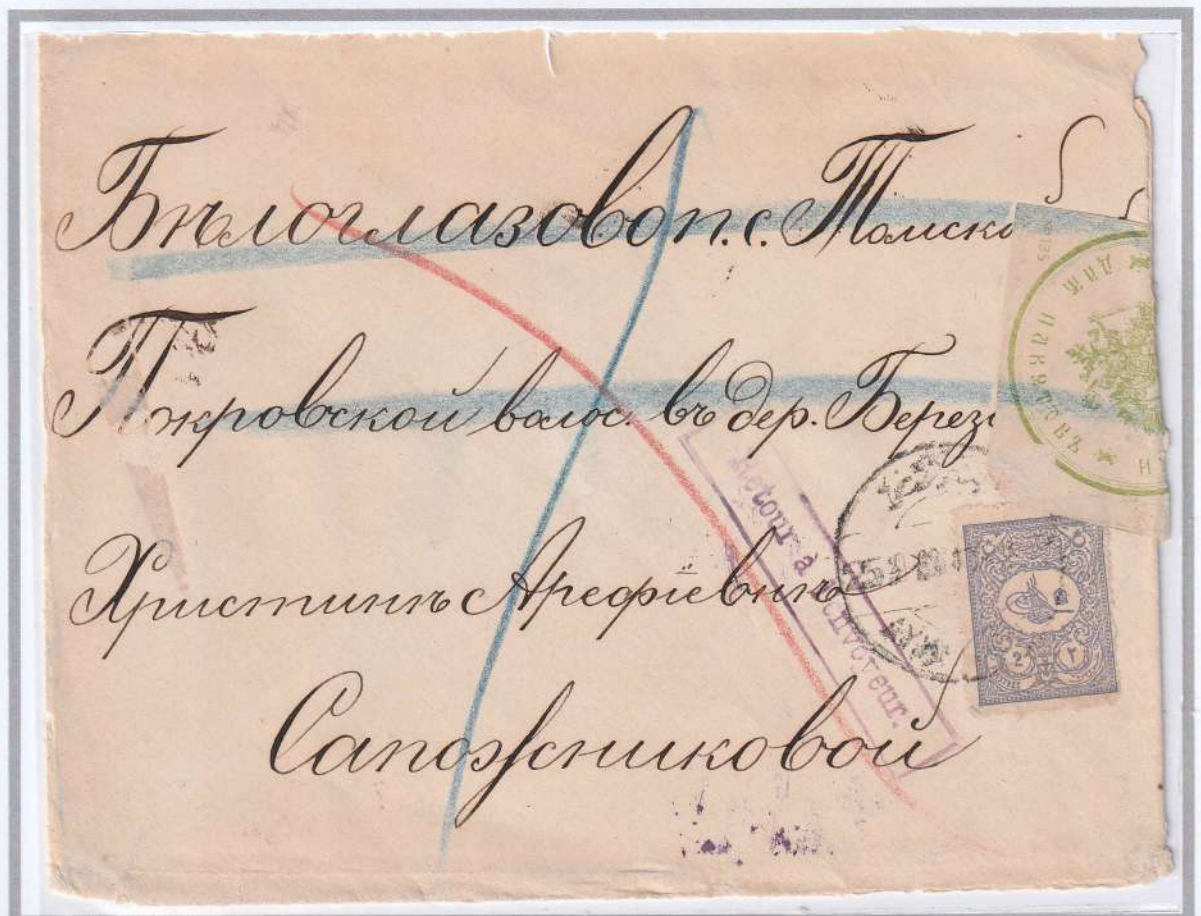 Бѣлоглазово п. с. Томско
Покровской волос. въ дер. Берез
Христинѣ Арефіевнѣ
Сапожниковой
Retour à l'Envoyeur.
2 ٢